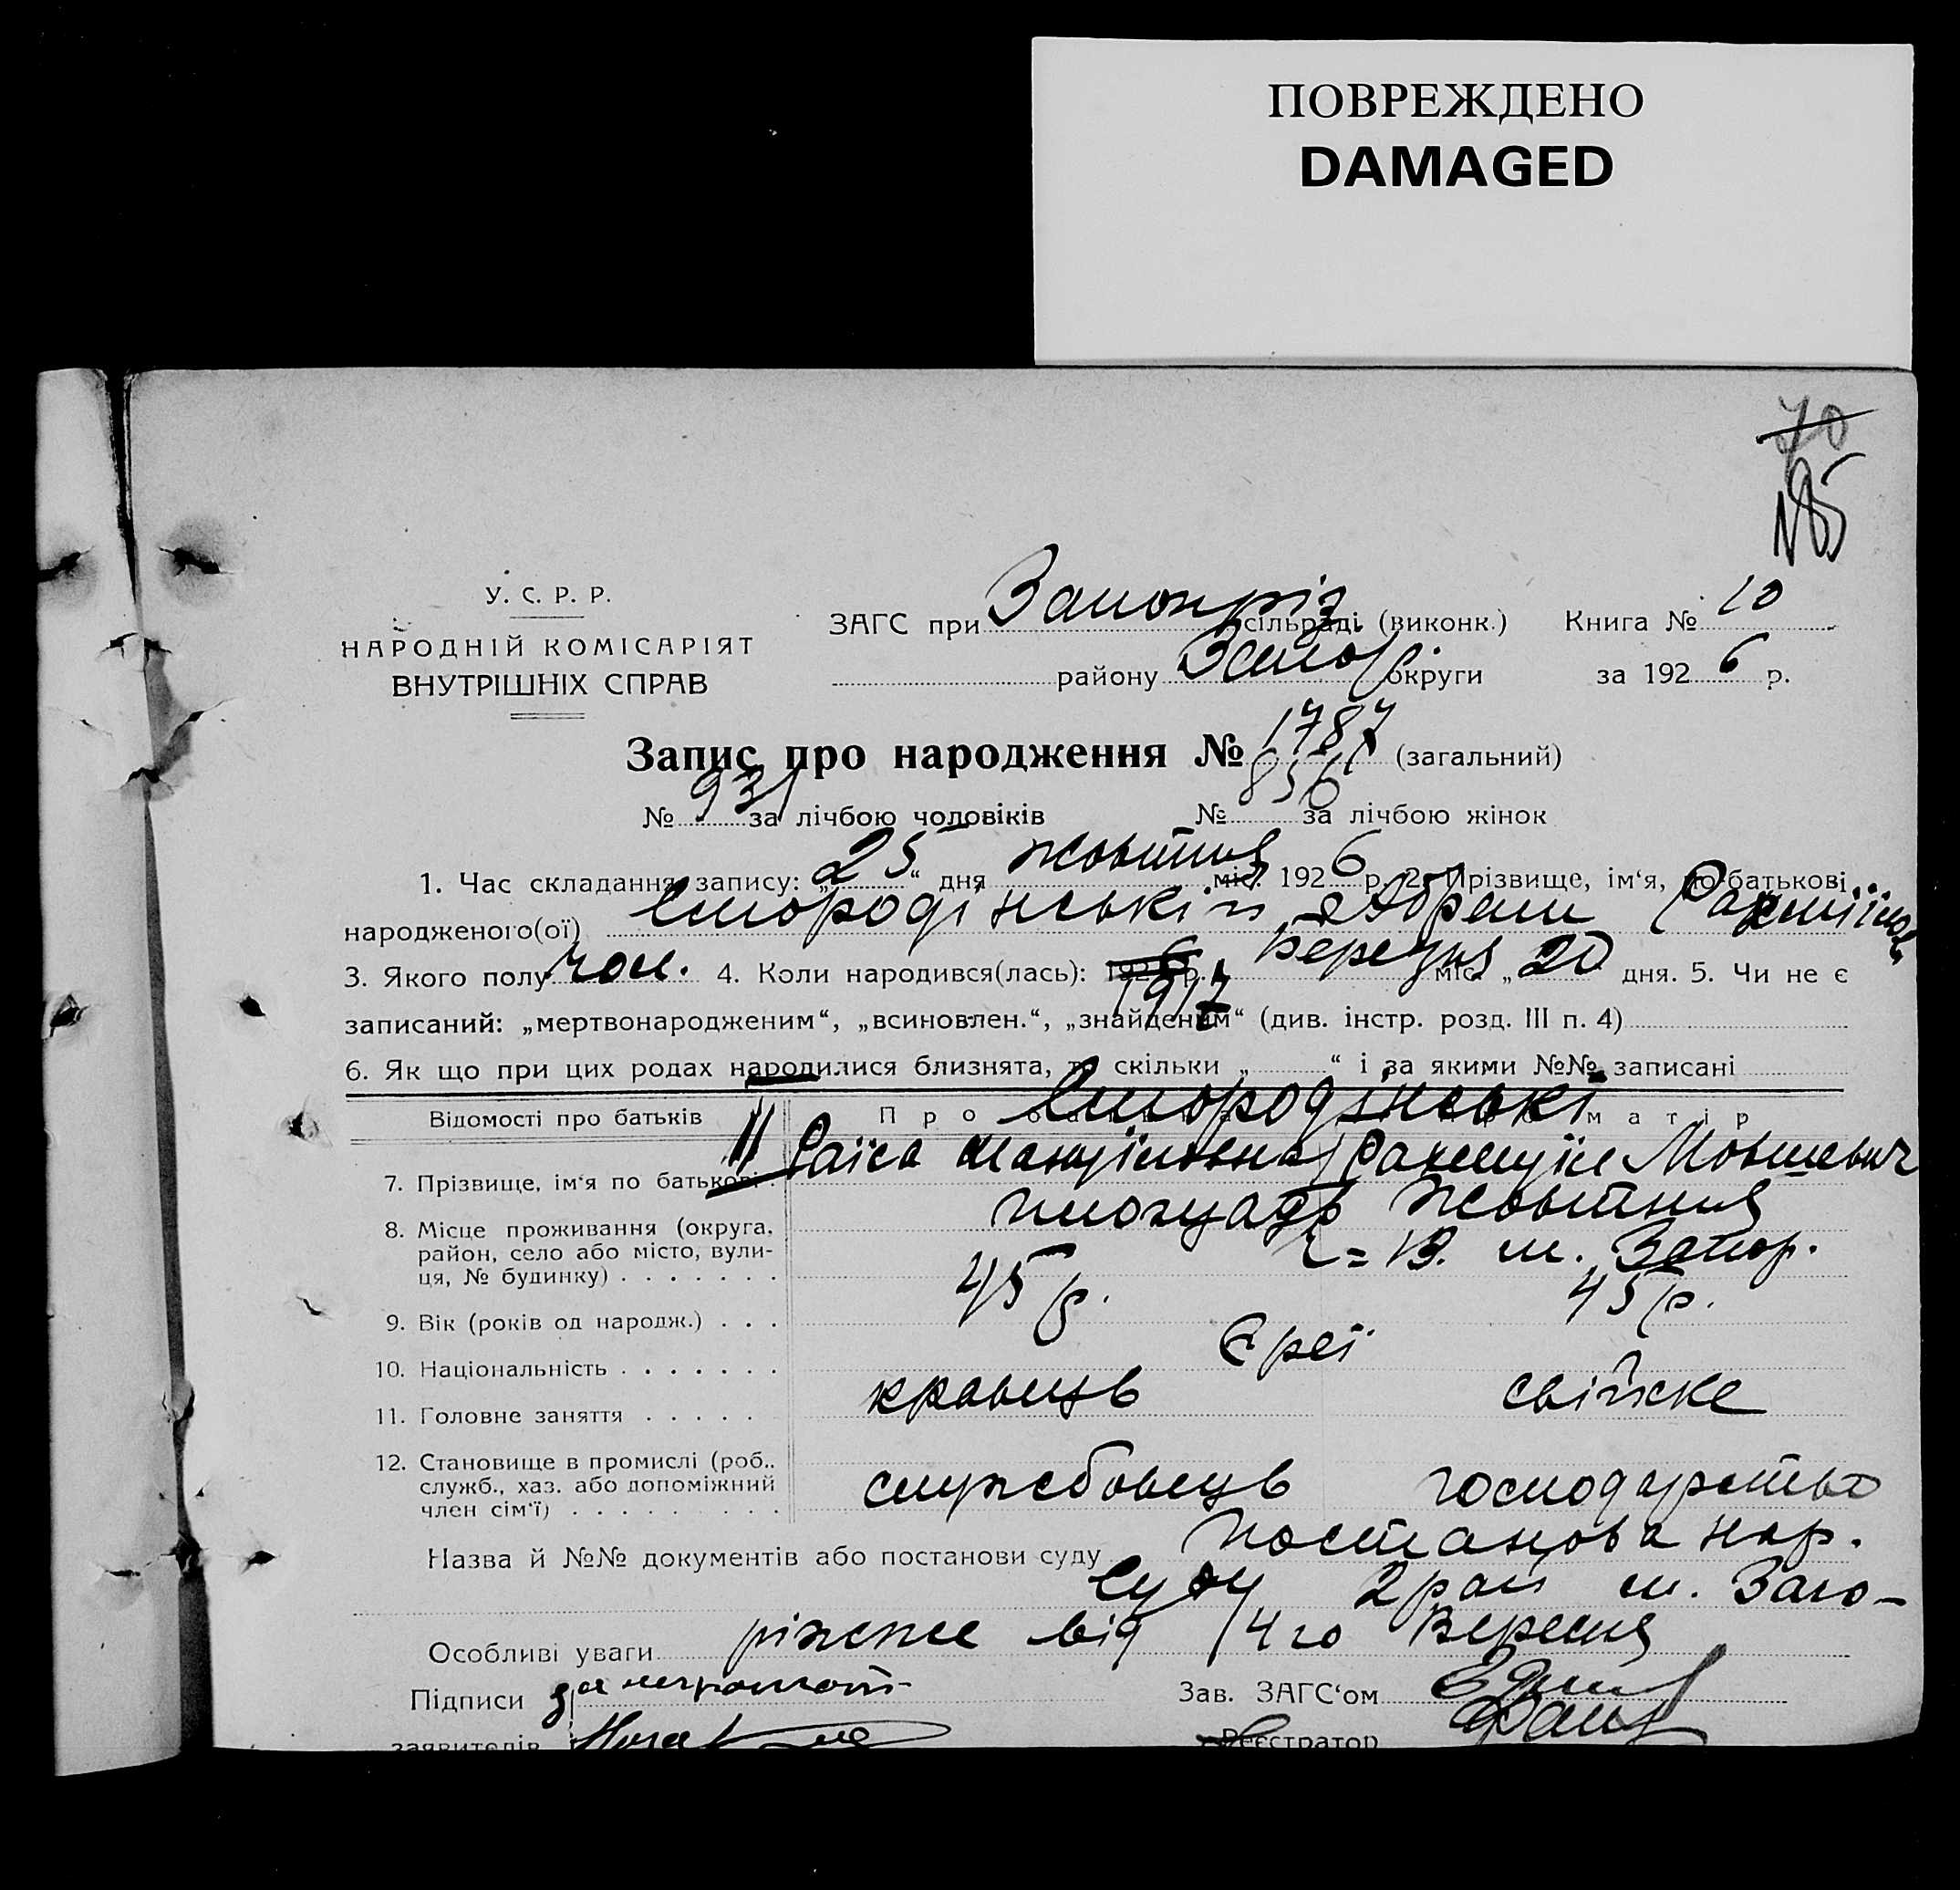 ПОВРЕЖДЕНО
DAMAGED
70
У. С. Р. Р.
НАРОДНІЙ КОМІСАРІЯТ
ВНУТРІШНІХ СПРАВ
ЗАГС при Запоріз. сільраді (виконк.) Книга № 10
району Запор округи за 1926 р.
Запис про народження № 1787 (загальний)
856
№ 931 за лічбою чоловіків № за лічбою жінок
1. Час складання запису: „25“ дня жовтня міс. 1926 р. 2. Прізвище, ім‘я, по батькові
народженого(ої) Смородінський Абрам
3. Якого полу чол. 4. Коли народився(лась): 1926 р. Березня міс. „20 дня. 5. Чи не є
1917
записаний: „мертвонародженим“, „всиновлен.“, „знайденим“ (див. інстр. розд. III п. 4)
6. Як що при цих родах народилися близнята, то скільки „ “ і за якими №№ записані
Відомості про батьків Про матір
Смородінські
7. Прізвище, ім‘я по батькові Раїса Мовшевич
8. Місце проживання (округа, площадь Жовтня
район, село або місто, вули- ч=13. м. Запор.
ця, № будинку)
9. Вік (років од народж.) 45 р. 45 р.
10. Національність Єреї
11. Головне заняття кравець свійське
12. Становище в промислі (роб.,
служб., хаз. або допоміжний службовець господарство
член сім‘ї)
Назва й №№ документів або постанови суду постанова нар.
суду 2 рай м. Запо-
Особливі уваги ріжже від 14го Вересня
Підписи за неграмотн
Зав. ЗАГС‘ом
заявителів
Реєстратор